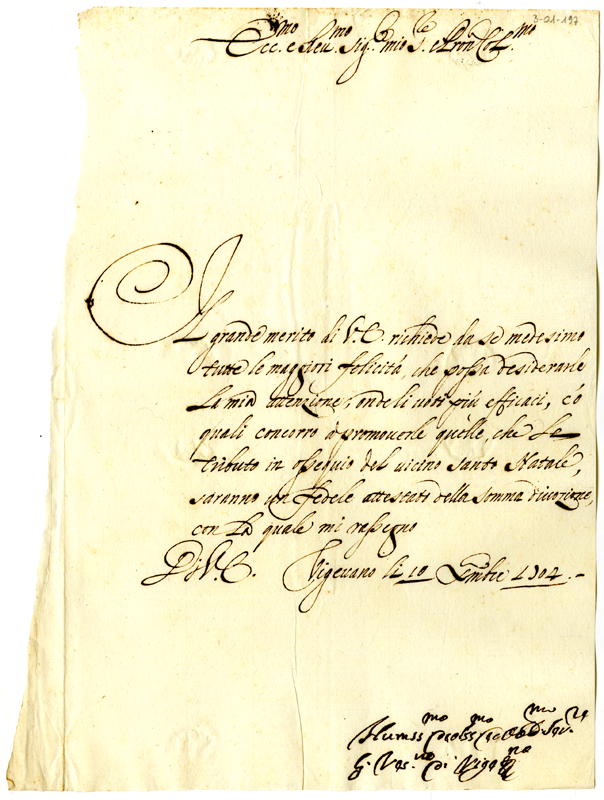 3-01-197
Ecc.mo e Reu.mo Sig.r mio S.re e Pron Col.mo
Il grande merito di V.E. richiede da se medesimo
tutte le maggiori felicità, che possa desiderarle
la mia attenzione; onde li uoti più efficaci, có
quali concorro à promouerle quelle, che le
tributo in ossequio del uicino santo Natale,
saranno un fedele attestato della somma diuozione,
con la quale mi rassegno
Di V.E. Vigeuano li 10 Xmbre 1704.
Humiss.mo
G. Ves.uo di Vigo